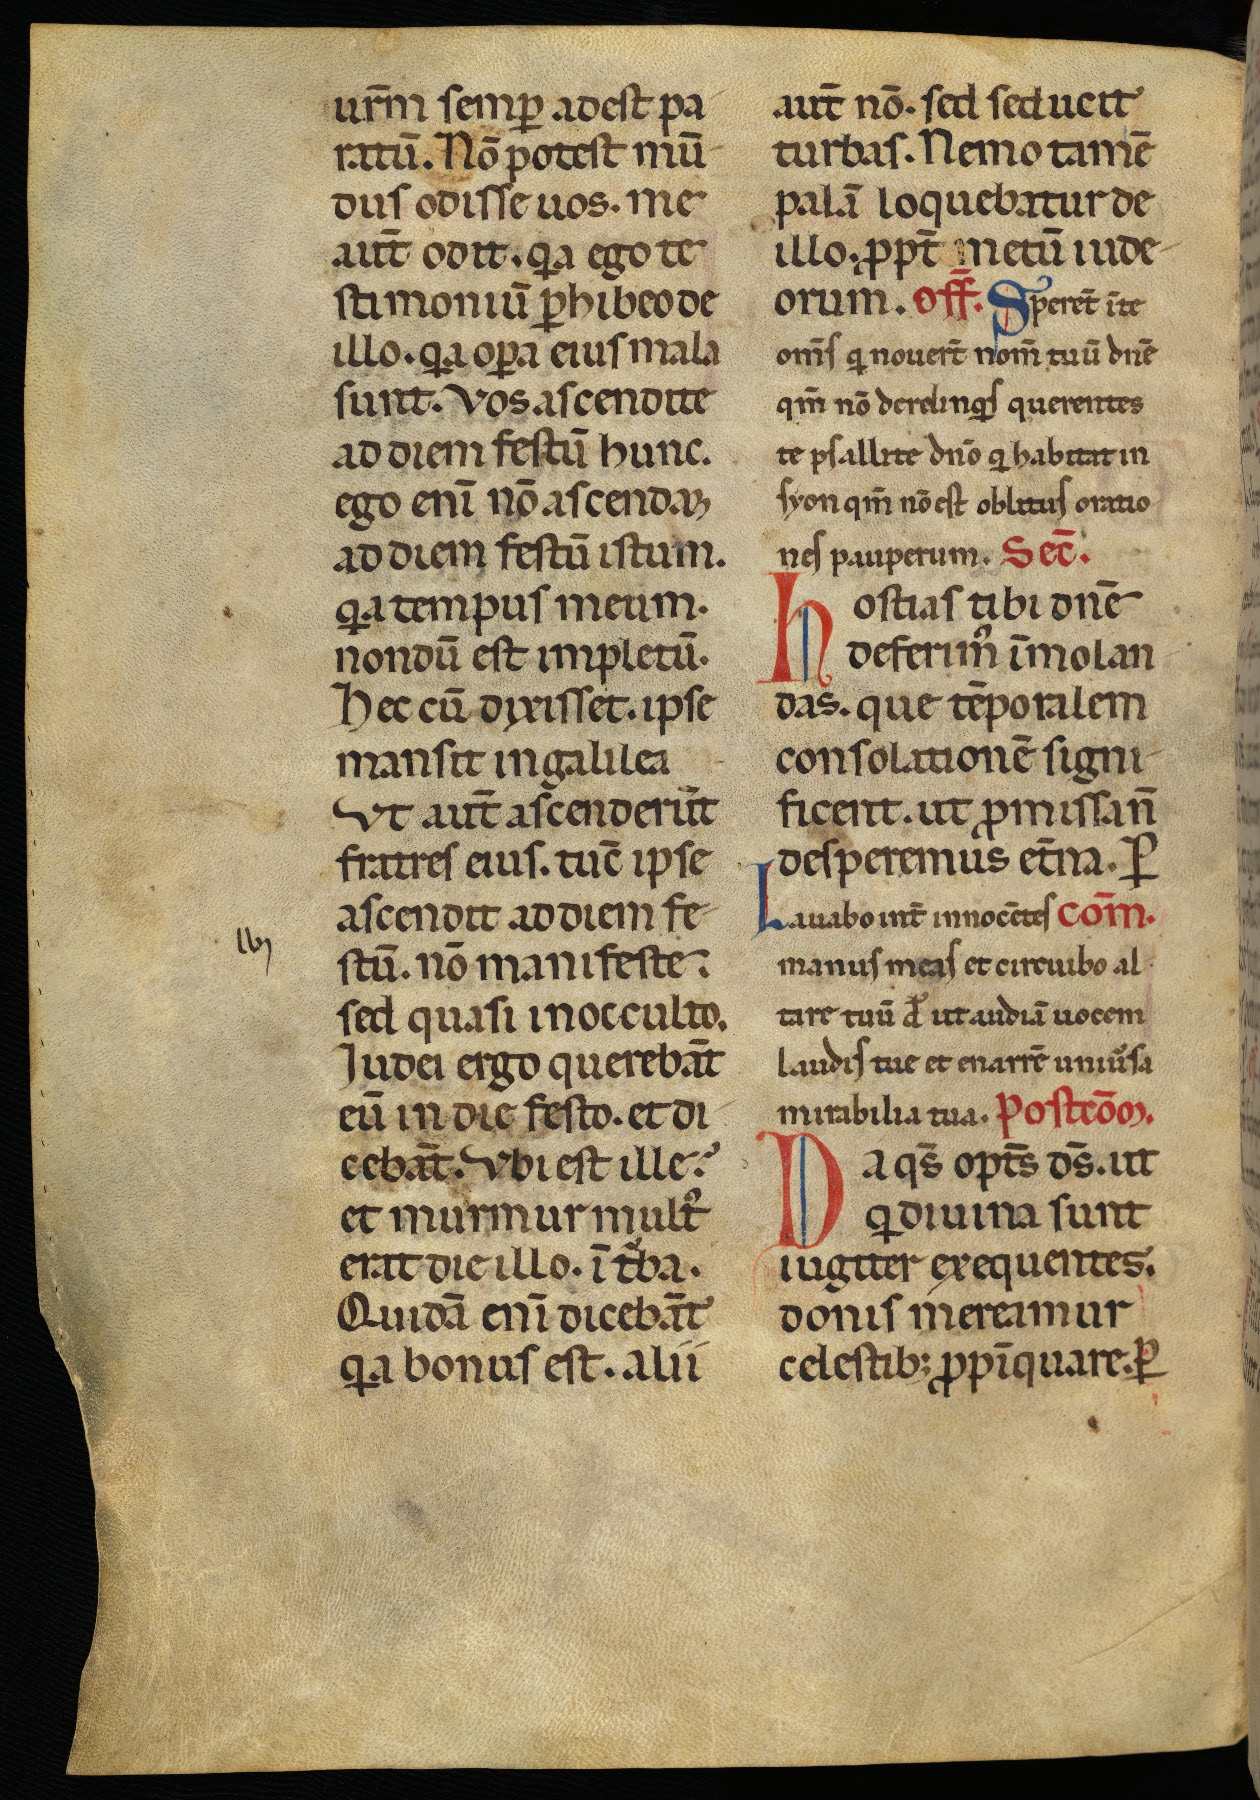 ur̄m semꝑ adest pa
ratū. Nō potest mū
dus odisse uos. me
aut̄ odit. q̇a ego te
stimoniū ꝑhibeo de
illo. q̇a oꝑa eius mala
sunt. Vos ascendite
ad diem festū hunc.
ego enī nō ascendaꝫ
ad diem festū istum.
q̇a tempus meum.
nondū est impletū.
Hec cū dixisset. ipse
mansit in galilea
Vt aut̄ ascenderūt
fratres eius. tūc ipse
ascendit ad diem fe
stū. nō manifeste.
sed quasi in occulto.
Iudei ergo querebāt
eū in die festo. et di
cebāt. Vbi est ille?
et murmur mult᷒
erat die illo. ī t̄ba.
Quidā enī dicebāt
q̇a bonus est. alii
aut̄ nō. sed seducit
turbas. Nemo tamē
palā loquebatur de
illo. ꝓpt̄ metū iude
orum. Off̄. Speret̄ ī te
om̄s q̇ nouert̄ nom̄ tuū dn̄e
qm̄ nō derelinq̇s querentes
te psallite dn̄o q̇ habitat in
syon qm̄ nō est oblitus oratio
nes pauperum. Sec̄.
Hostias tibi dn̄e
deferim᷒ īmolan
das. que tēporalem
consolationē signi
ficent. ut ꝓmissa n̄
desperemus et̄na. ꝑ
Lauabo int̄ innocētes Com̄.
manus meas et circuibo al
tare tuū d̄ ut audiā uocem
laudis tue et enarrē uniu̾sa
mirabilia tua. Postcōm.
Da qs̄ opt̄s ds̄. ut
q̇ diuina sunt
iugiter exequentes.
donis mereamur
celestibꝫ ꝓpīquare. ꝑ